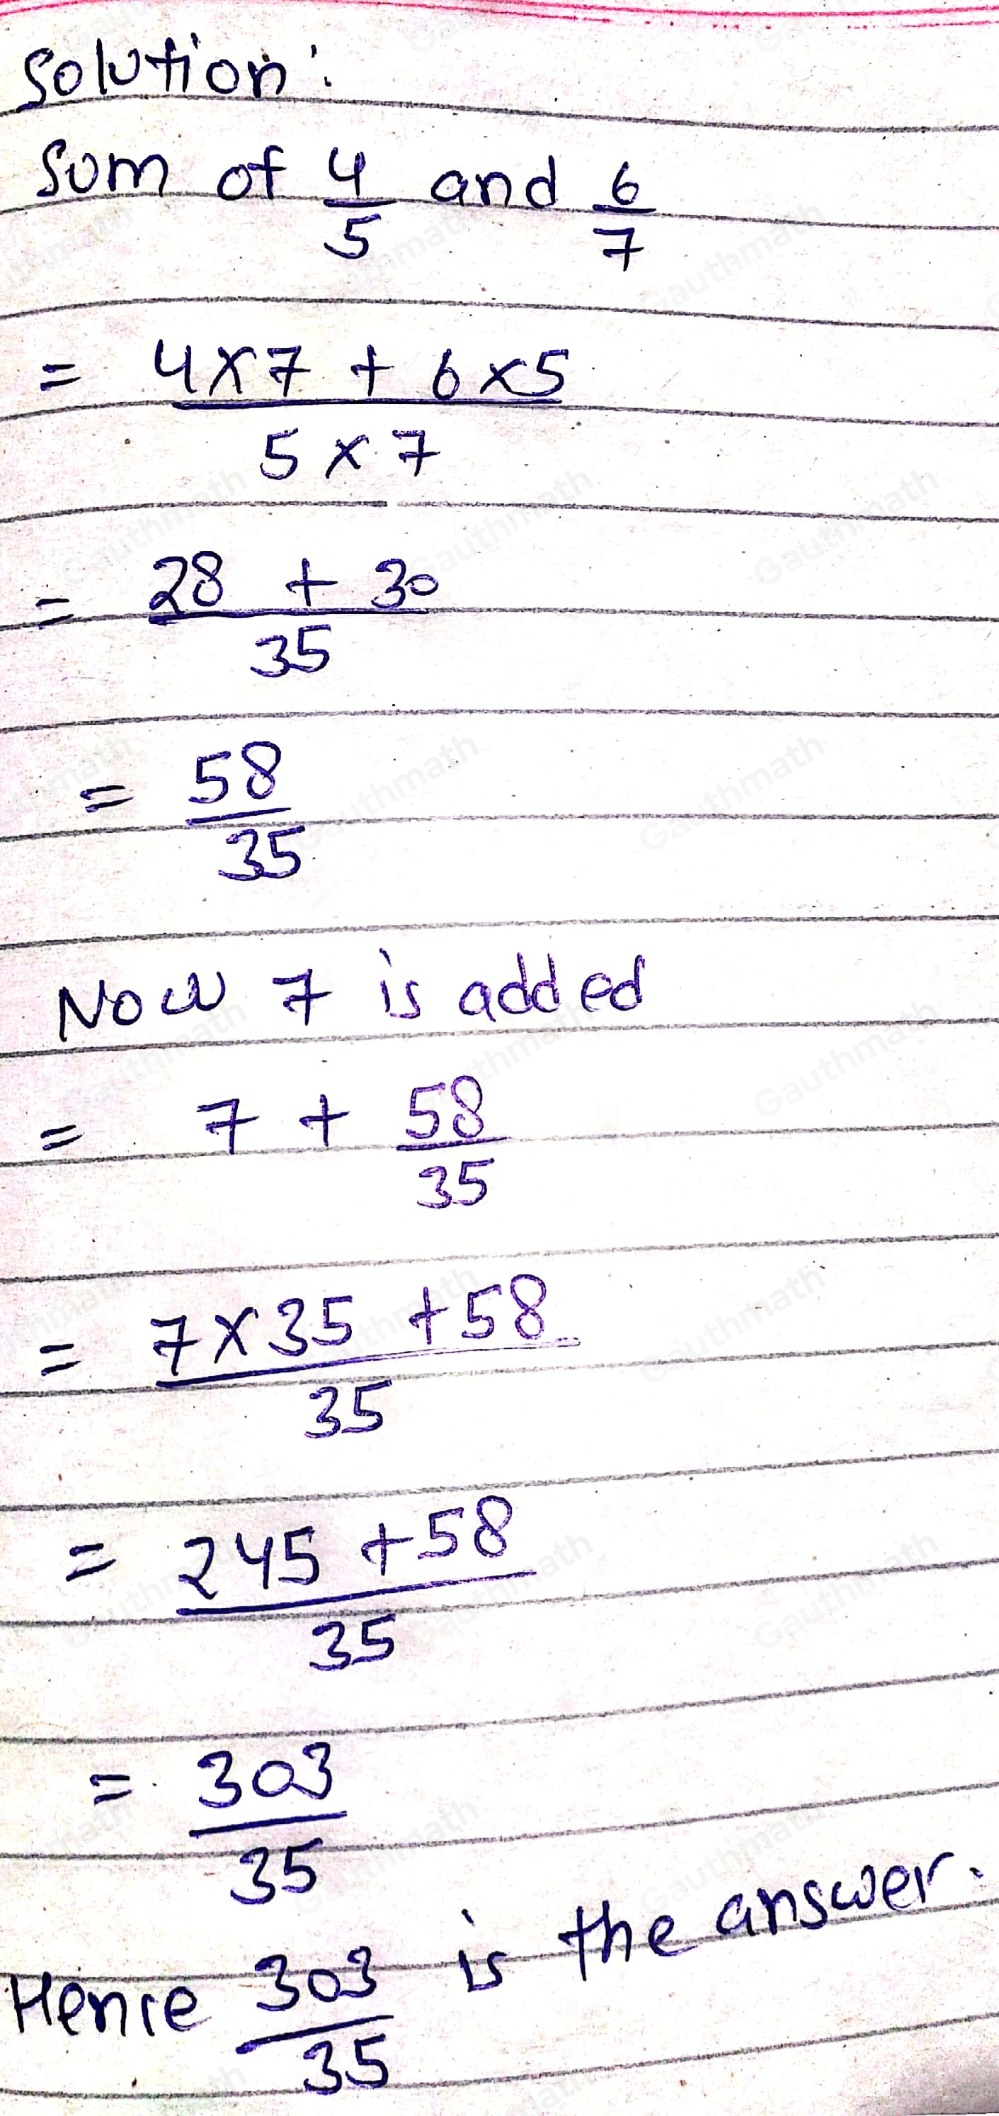 Solution:
Sum of 4/5 and 6/7
= 4×7 + 6×5 / 5×7
= 28 + 30 / 35
= 58/35
Now 7 is added
= 7 + 58/35
= 7×35 +58 / 35
= 245 +58 / 35
= 303/35
Hence 303/35 is the answer.
Gauthmath